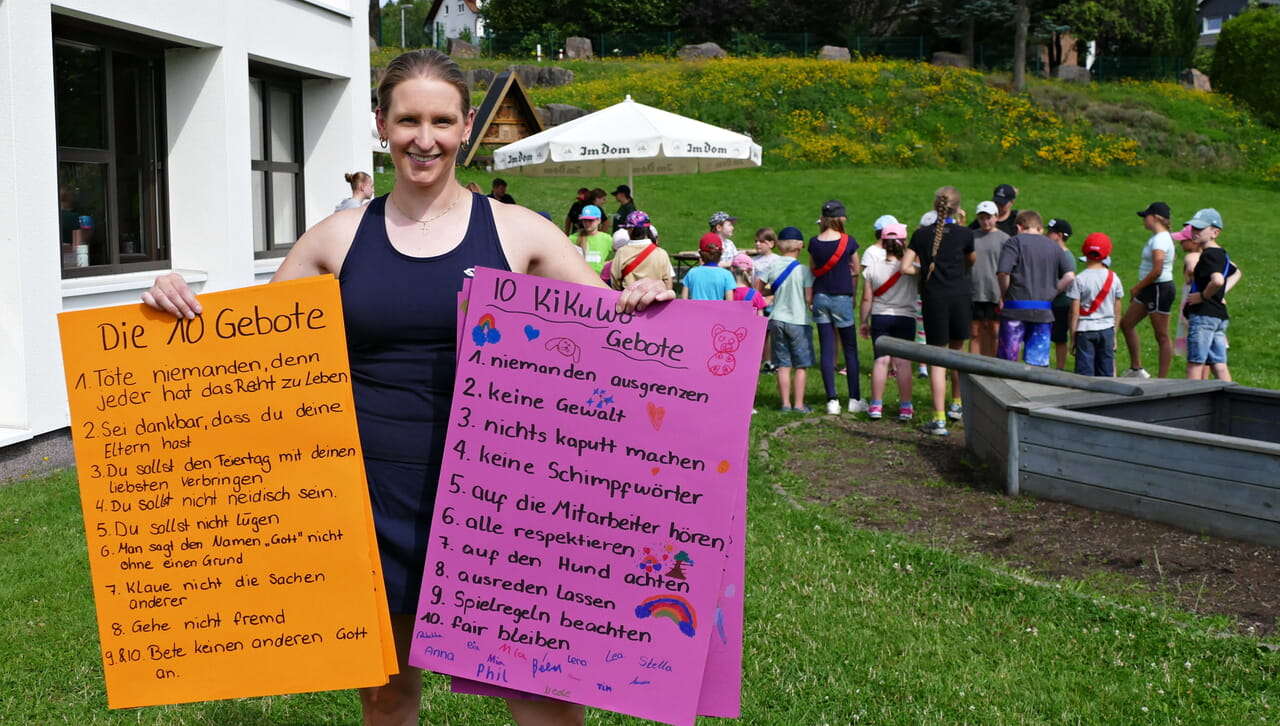 ImDom
ImDom
Die 10 Gebote
1. Töte niemanden, denn
jeder hat das Reht zu Leben
2. Sei dankbar, dass du deine
Eltern hast
3. Du sollst den Feiertag mit deinen
liebsten verbringen
4. Du sollst nicht neidisch sein.
5. Du sollst nicht lügen
6. Man sagt den Namen „Gott" nicht
ohne einen Grund
7. Klaue nicht die Sachen
anderer
8. Gehe nicht fremd
9.&10. Bete keinen anderen Gott
an.
10 KiKuWo
Gebote
1. niemanden ausgrenzen
2. keine Gewalt
3. nichts kaputt machen
4. keine Schimpfwörter
5. auf die Mitarbeiter hören
6. alle respektieren
7. auf den Hund achten
8. ausreden lassen
9. Spielregeln beachten
10. fair bleiben
Mia Lena Lea Stella
Anna Mia Phil
Tim